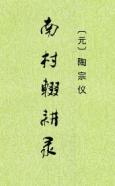 南村辍耕录
〔元〕陶宗仪